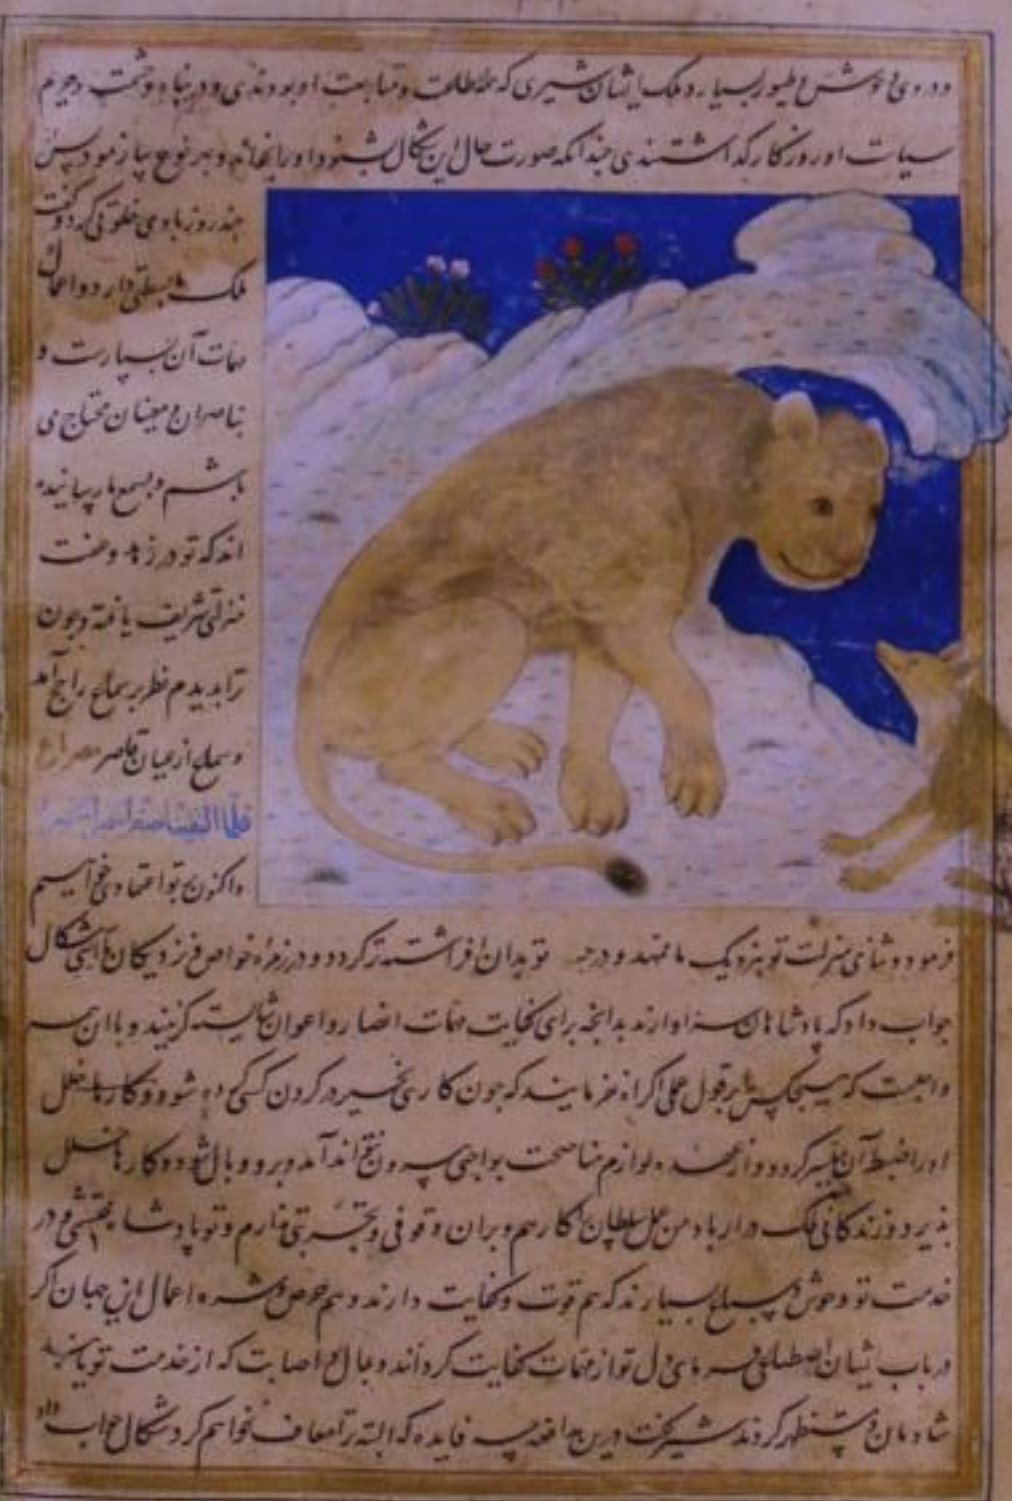 و در وی وحوش و طیور بسیار و ملک ایشان شیری که همه در طاعت و متابعت او بودندی و در پناه و حشمت و حریم
سیاست او روزگار گذاشتندی چندانکه صورت حال این شکال بشنود او را بخواند و بهر نوع بیازمود پس
چند روز با وی خلوتی کرد و گفت
ملک ما بسطتی دارد و اعمال
مهمات آن بسیارست و
بناصران و معینان محتاج می
باشم و بسمع ما رسانیده
اند که تو در زهد و عفت
منزلتی شریف یافته و چون
ترا بدیدم نظر بر سماع راجح آمد
و سماع از عیان قاصر مصراع
فلما التقینا صغر الخبر الخبر
و اکنون بر تو اعتمادی خواهیم
فرمود و ثنای منزلت تو بنزدیک ما تمهد و درجه تو بدان افراشته تر گردد و در زمره خواص و نزدیکان ما آیی شکال
جواب داد که پادشاهان سزاوارند بدانچه برای کفایت مهمات انصار و اعوان شایسته گزینند و با این همه
واجبست که هیچکس را بر قبول عمل اکراه نفرمایند که چون کاری بجبر در گردن کسی شود و کارها خلل
او را ضبط آن میسر نگردد و از عهده لوازم مناصحت بواجبی بیرون نتواند آمد و برو وبال شود و کارها خلل
پذیرد و زندگانی ملک دراز باد من عمل سلطان را کارهم و بران وقوفی و تجربتی ندارم و تو پادشاه محتشمی و در
خدمت تو وحوش و سباع بسیارند که هم قوت و کفایت دارند و هم حرص و شره اعمال این جهان اگر
در باب ایشان اصطناعی فرمای دل تو از مهمات کفایت گردانند و بمال و اصابت که از خدمت تو یابند
شادمان و مستظهر گردند شیر گفت درین مدافعه چه فایده که البته ترا معاف نخواهم کرد شکال جواب داد